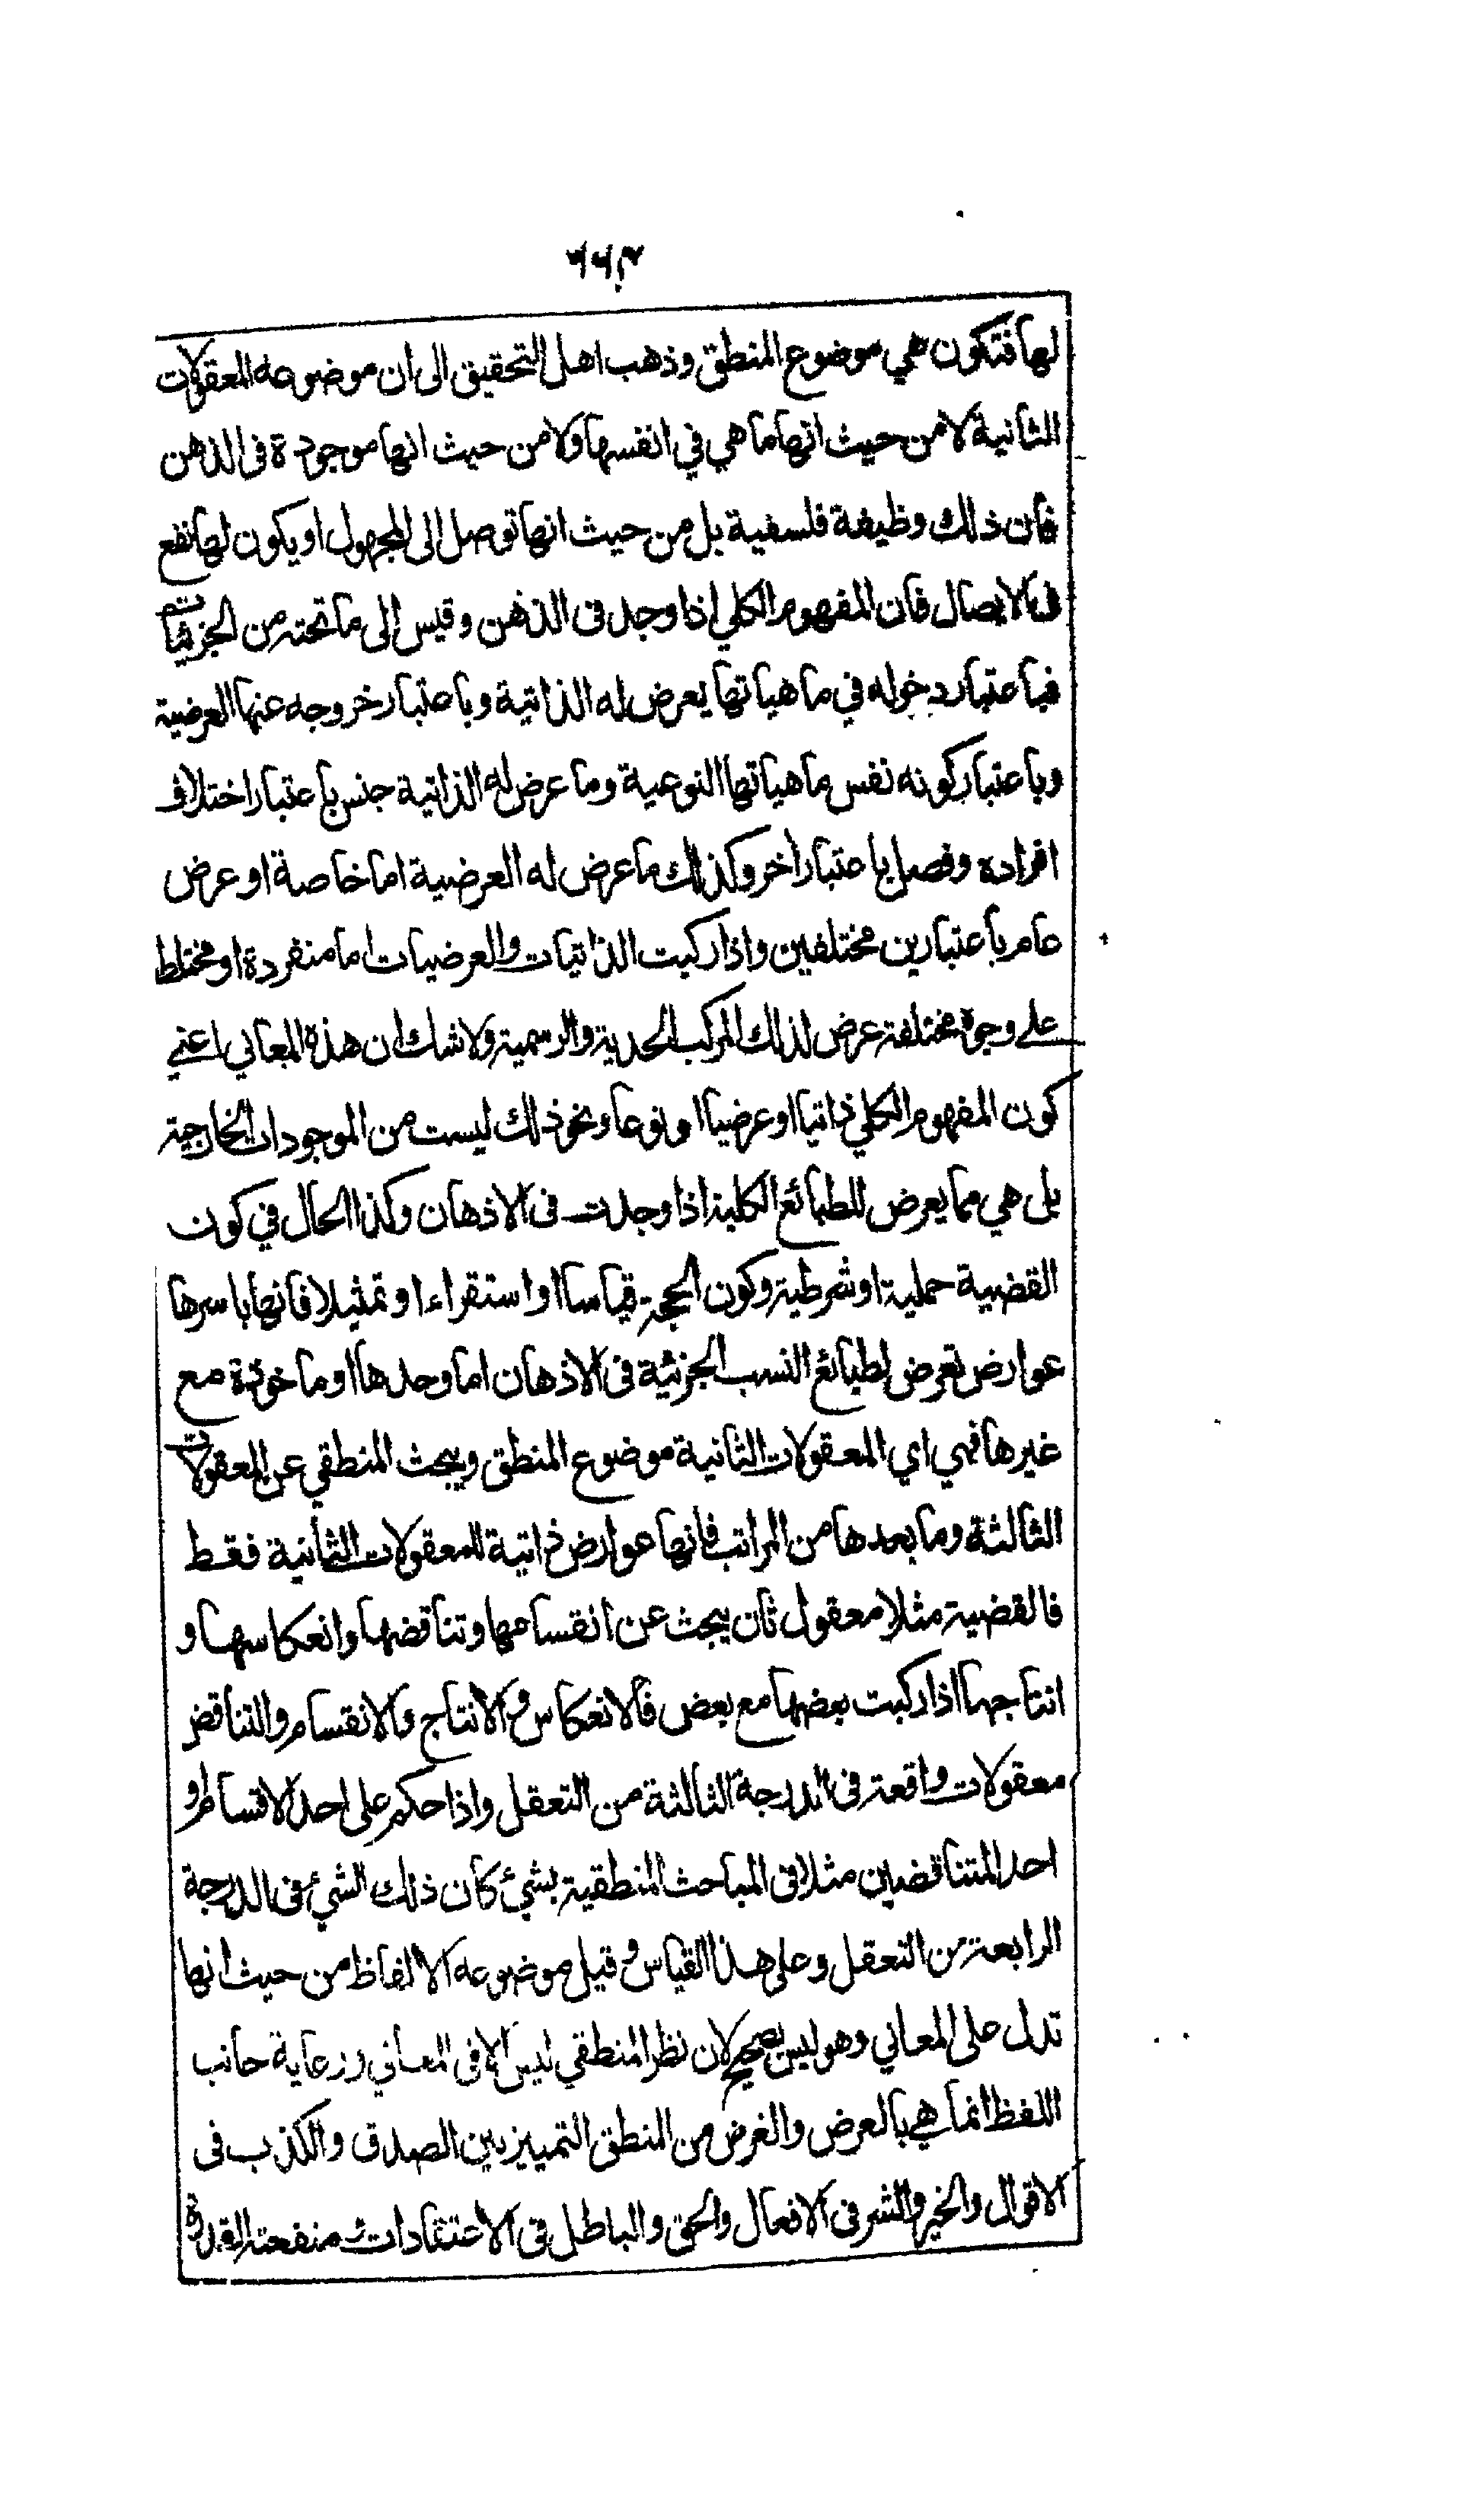 ٦٦٣
لها فتكون هي موضوع المنطق وذهب اهل التحقيق الى ان موضوعه المعقولات
الثانية لا من حيث انها ما هي في انفسها ولا من حيث انها موجودة فى الذهن
فان ذلك وظيفة فلسفية بل من حيث انها توصل الى المجهول او يكون لها نفع
فى الايصال فان المفهوم الكلي اذا وجد فى الذهن وقيس الى ما تحته من الجزئيات
فباعتبار دخوله في ماهياتها يعرض له الذاتية وباعتبار خروجه عنها العرضية
وباعتبار كونه نفس ماهياتها النوعية وما عرض له الذاتية جنس باعتبار اختلاف
افراده وفصل باعتبار اخر وكذلك ما عرض له العرضية اما خاصة او عرض
عام باعتبارين مختلفين واذا ركبت الذاتيات والعرضيات اما منفردة او مختلط
على وجوه مختلفة عرض لذلك المركب الحدية والرسمية ولا شك ان هذه المعاني اعني
كون المفهوم الكلي ذاتيا او عرضيا او نوعا ونحو ذلك ليست من الموجودات الخارجية
بل هي مما يعرض للطبائع الكلية اذا وجدت فى الاذهان وكذا الحال في كون
القضية حملية او شرطية وكون الحجة قياسا او استقراءا وتمثيلا فانها باسرها
عوارض تعرض لطبائع النسب الجزئية فى الاذهان اما وحدها او ماخوذة مع
غيرها فهي اي المعقولات الثانية موضوع المنطق ويبحث المنطقي عن المعقولات
الثالثة وما بعدها من المراتب فانها عوارض ذاتية للمعقولات الثانية فقط
فالقضية مثلا معقول ثان يبحث عن انقسامها وتناقضها وانعكاسها و
انتاجها اذا ركبت بعضها مع بعض فالانعكاس والانتاج والانقسام والتناقض
معقولات واقعة فى الدرجة الثالثة من التعقل واذا حكم على احد الاقسام او
احد المتناقضين مثلا فى المباحث المنطقية بشئ كان ذلك الشئ فى الدرجة
الرابعة من التعقل وعلى هذا القياس وقيل موضوعه الالفاظ من حيث انها
تدل على المعاني وهو ليس بصحيح لان نظر المنطقي ليس الا فى المعاني ورعاية جانب
اللفظ انما هي بالعرض والغرض من المنطق التمييز بين الصدق والكذب فى
الاقوال والخير والشر فى الافعال والحق والباطل فى الاعتقادات ومنفعته القدرة